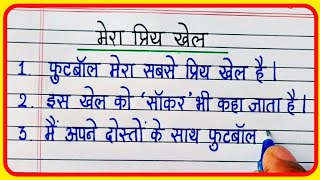 मेरा प्रिय खेल
1. फुटबॉल मेरा सबसे प्रिय खेल है।
2. इस खेल को 'सॉकर' भी कहा जाता है।
3. मैं अपने दोस्तों के साथ फुटबॉल